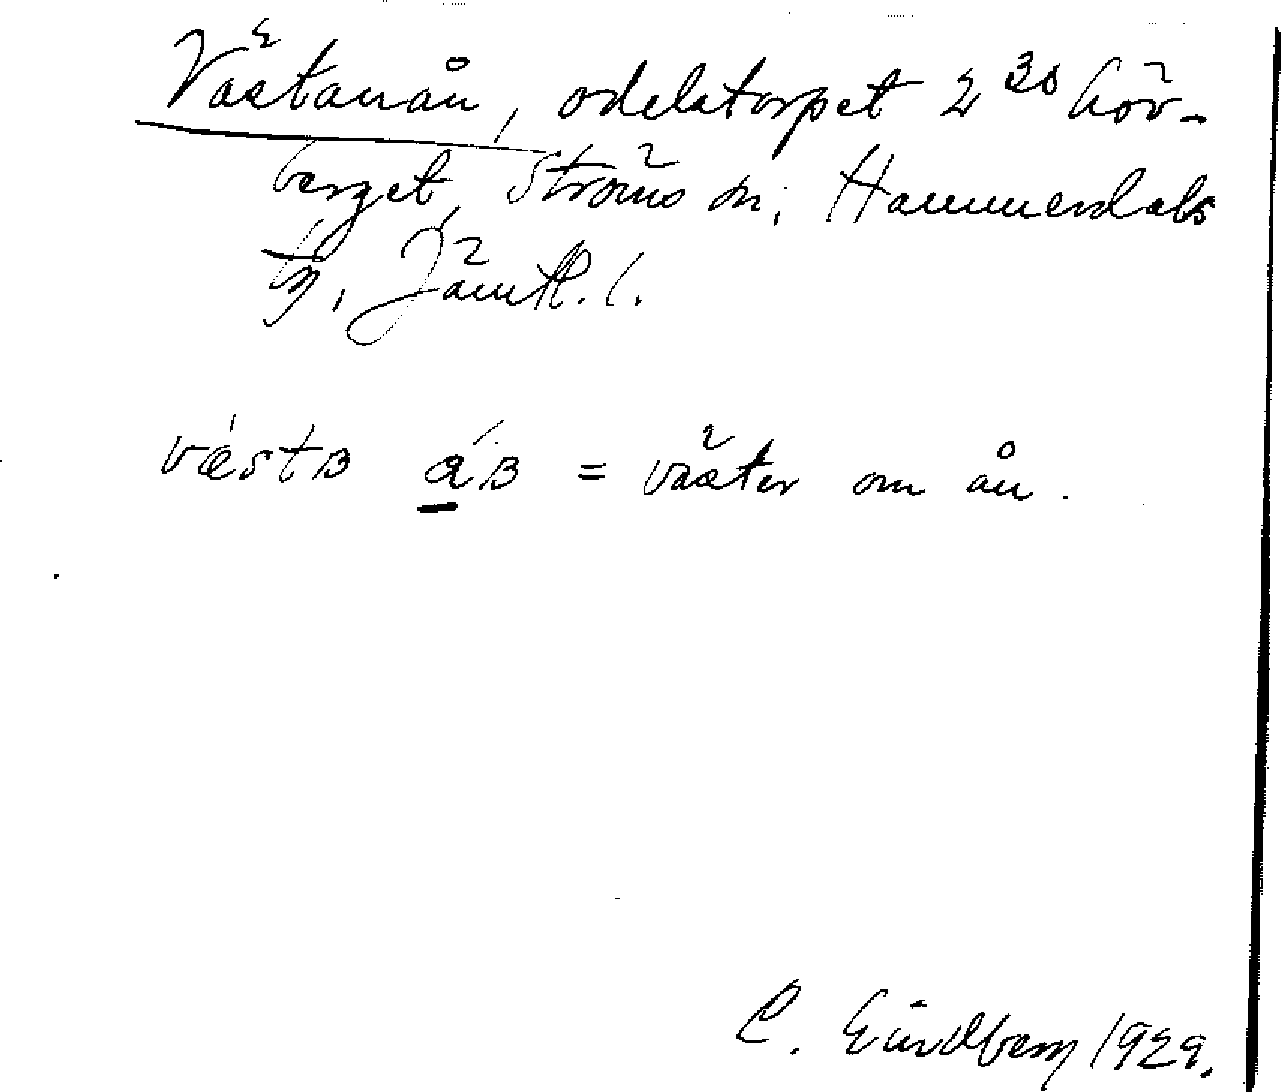 Västanån, odelstorpet 2³⁰ Höv-
berget, Ströms sn, Hammerdals
tg, Jämtl. l.
væstʙ áʙ = väster om ån.
C. Lindberg 1929.